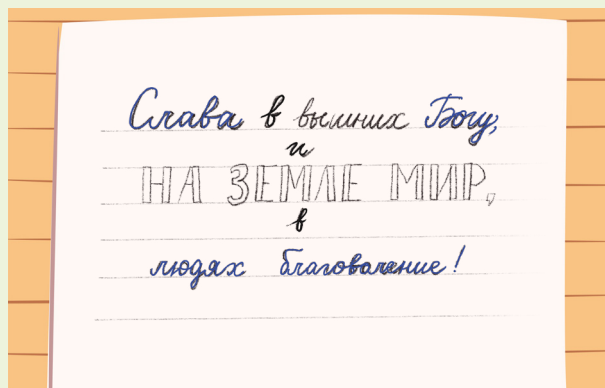 Слава в вышних Богу,
и
НА ЗЕМЛЕ МИР,
в
людях благоволение!